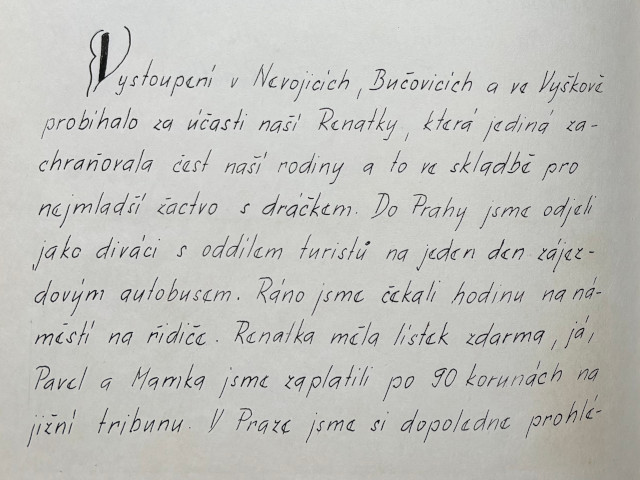 Vystoupení v Nevojicích, Bučovicích a ve Vyškově
probíhalo za účasti naší Renatky, která jediná za-
chraňovala čest naší rodiny a to ve skladbě pro
nejmladší žactvo s dráčkem. Do Prahy jsme odjeli
jako diváci s oddílem turistů na jeden den zájez-
dovým autobusem. Ráno jsme čekali hodinu na ná-
městí na řidiče. Renatka měla lístek zdarma, já,
Pavel a Mamka jsme zaplatili po 90 korunách na
jižní tribunu. V Praze jsme si dopoledne prohlé-